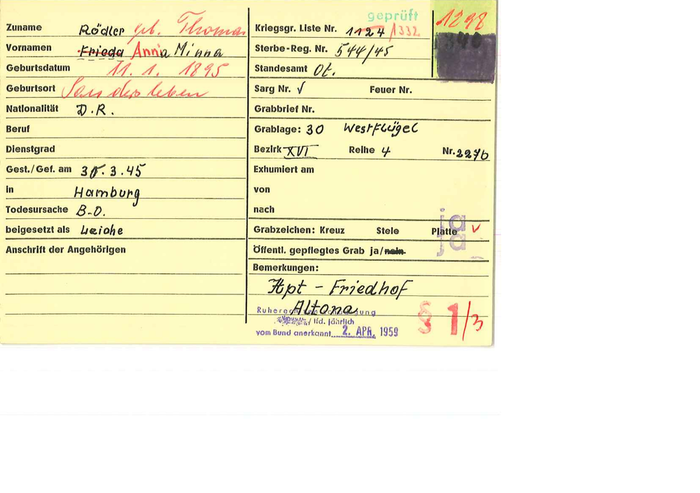 geprüft
1298
Zuname Rödler geb. Thomas
Vornamen Frieda Anna Minna
Geburtsdatum 11. 1. 1895
Geburtsort Sandersleben
Nationalität D.R.
Beruf
Dienstgrad
Gest./Gef. am 30.3.45
in Hamburg
Todesursache B-O.
beigesetzt als Leiche
Anschrift der Angehörigen
Kriegsgr. Liste Nr. 1124 /1332
Sterbe-Reg. Nr. 544/45
Standesamt Ot.
Sarg Nr. √ Feuer Nr.
Grabbrief Nr.
Grablage: 30 Westflügel
Bezirk XVI Reihe 4 Nr. 227b
Exhumiert am
von
nach
Grabzeichen: Kreuz Stele Platte √
ja
ja
Öffentl. gepflegtes Grab ja/nein
Bemerkungen:
Hpt - Friedhof
Altona
lfd. jährlich
vom Bund anerkannt 2. APR. 1959
§ 1/3